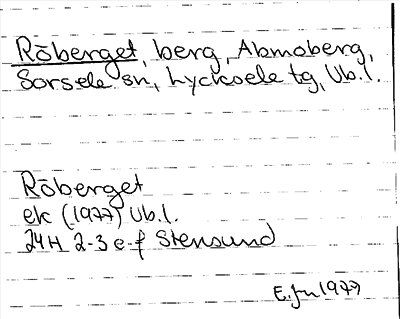 Rōberget, berg, Abmoberg,
Sorsele sn, Lycksele tg, Vb.l.
Rōberget
ek (1977) Vb.l.
24H 2-3 e-f Stensund
E. Jn 1979